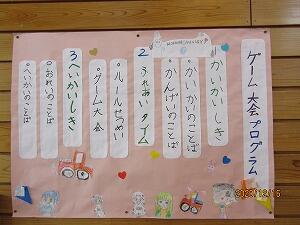 ゲーム大会プログラム
1 かいかいしき
◦かいかいのことば
◦かんげいのことば
2 ふれあいタイム
◦ルールせつめい
◦ゲーム大会
3 へいかいしき
◦おれいのことば
◦へいかいのことば